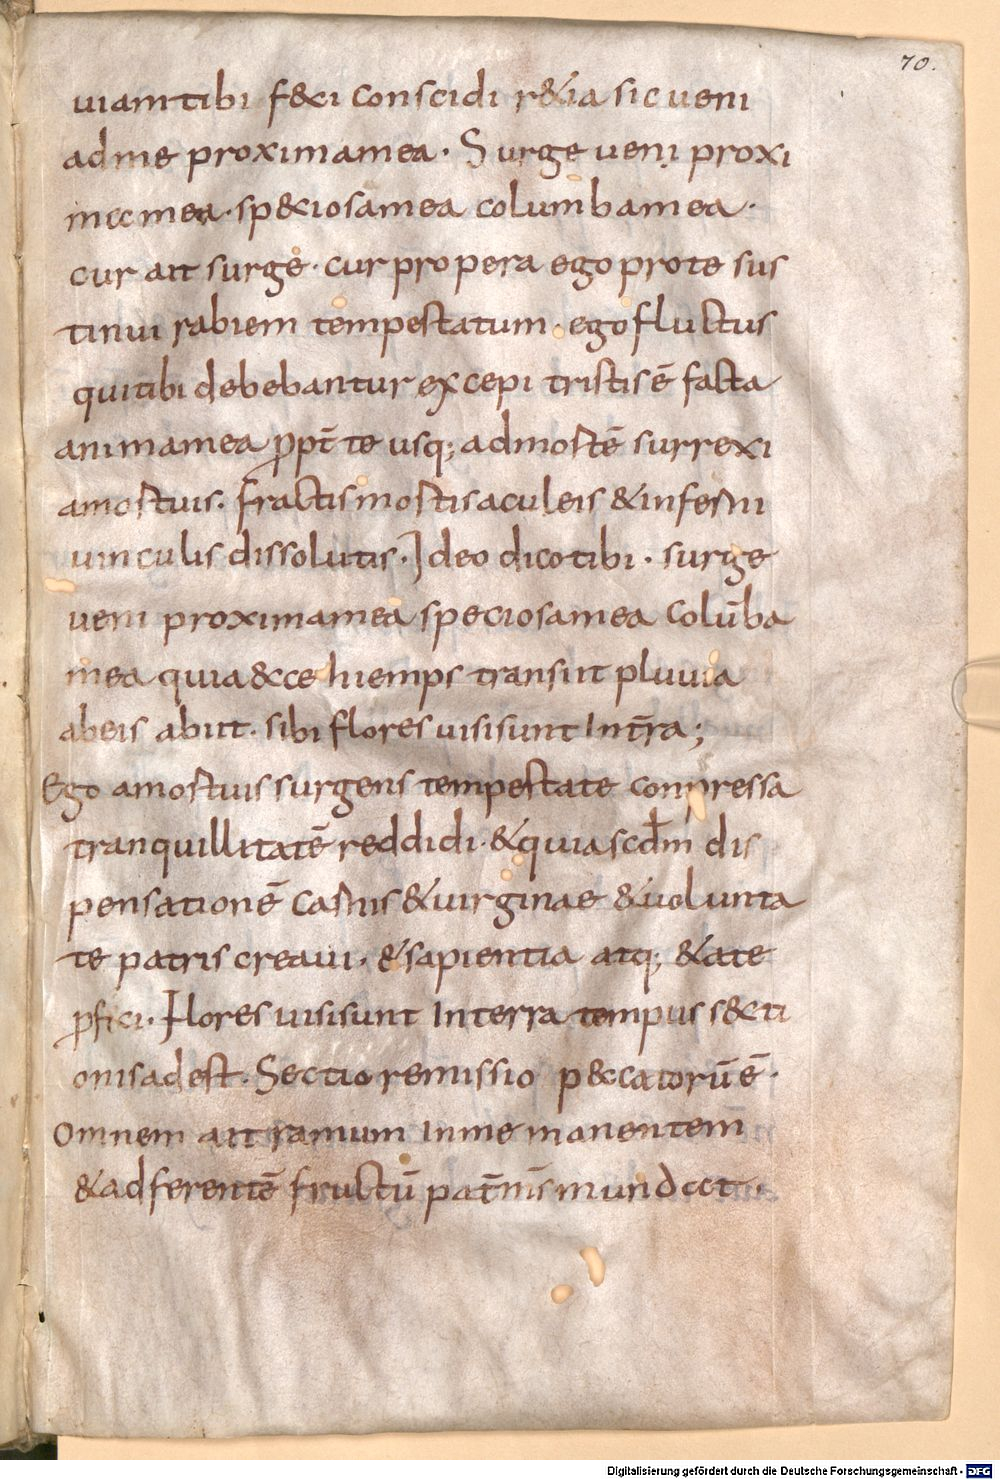 70.
uiam tibi f&ci conscidi r&ia sic ueni
ad me proxima mea. Surge ueni proxi
ma mea. sp&ciosa mea columba mea.
cur ait surge. cur propera ego pro te sus
tinui rabiem tempestatum. ego fluctus
qui tibi debebantur excepi tristis ē facta
anima mea ꝓpt̄ te usq; ad mortē surrexi
a mortuis. fractis mortis aculeis & inferni
uinculis dissolutis. Ideo dico tibi. surge
ueni proxima mea speciosa mea colūba
mea quia &cce hiemps transiit pluuia
abeis abiit. sibi flores uisi sunt Int̄ra;
Ego a mortuis surgens tempestate compressa
tranquillitatē reddidi. & quia scdm̄ dis
pensationē carnis & uirginae & uolunta
te patris creaui. & sapientia atq; &ate
ꝓfici. Flores uisi sunt In terra tempus s&cti
onis adest. Sectio remissio p&ccatorū ē.
Omnem ait ramum In me manentem
& adferentē fructū pat̄ m̄s mundat.
Digitalisierung gefördert durch die Deutsche Forschungsgemeinschaft - DFG